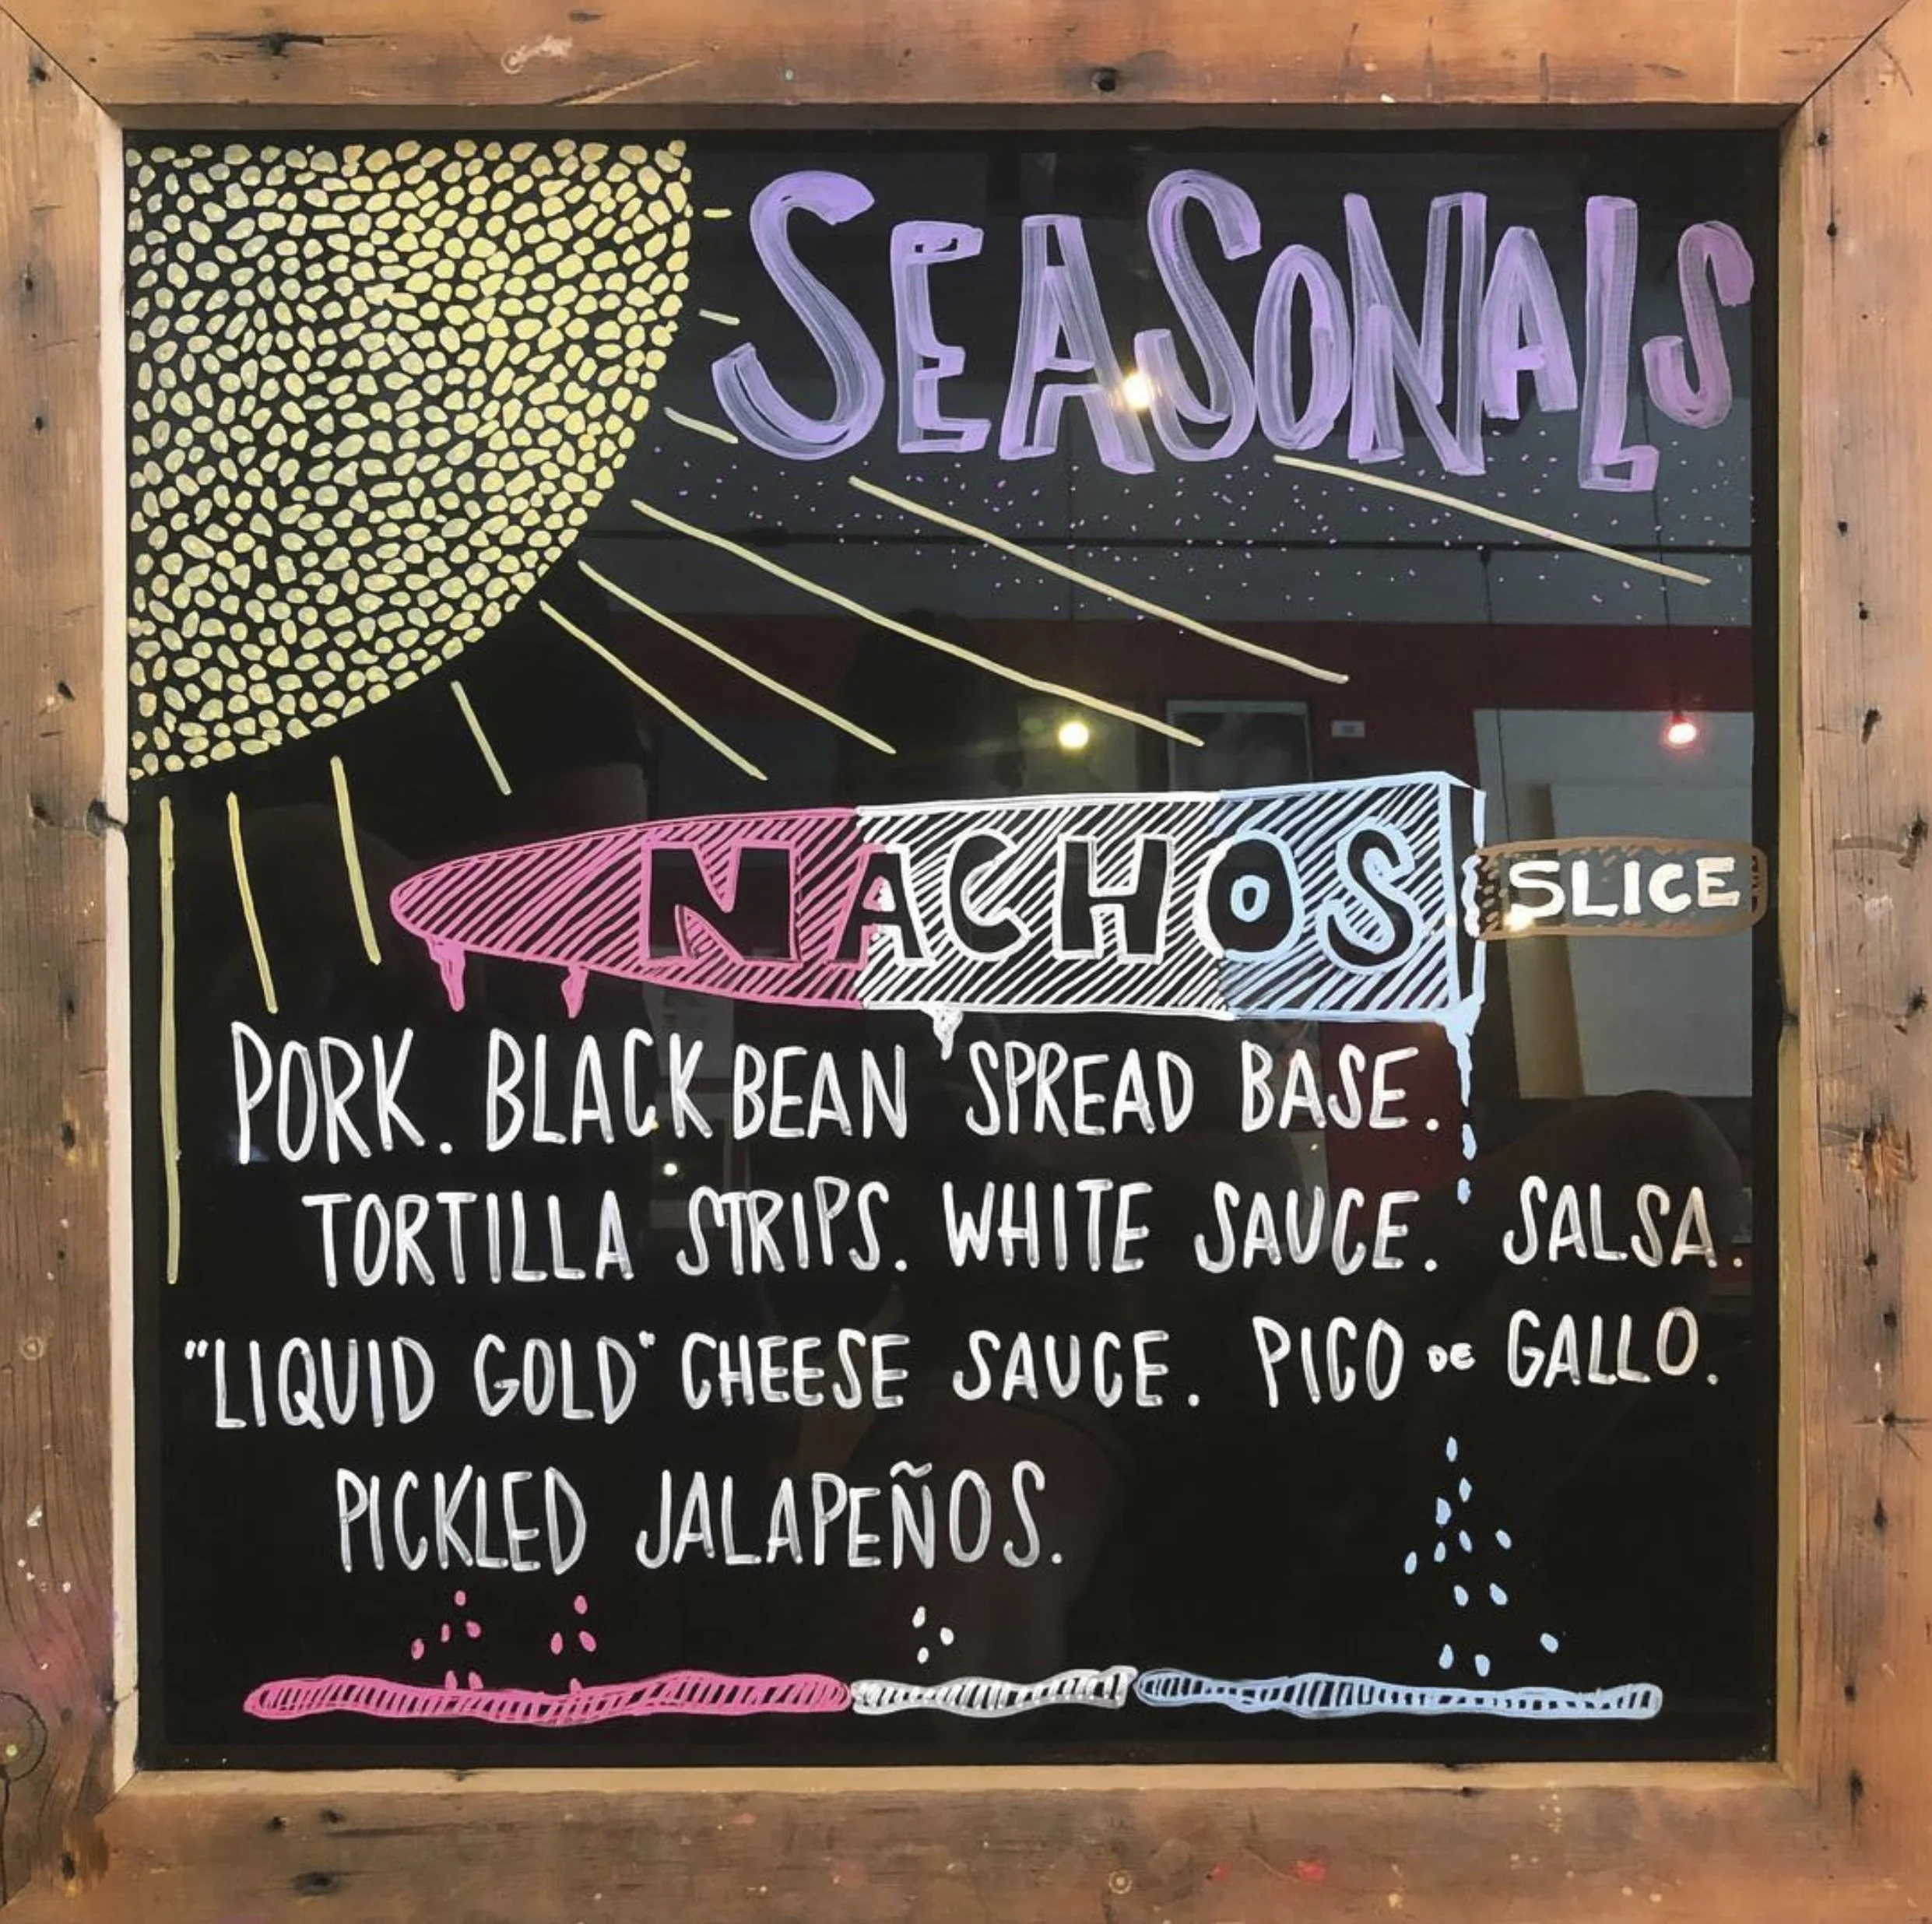 SEASONALS
NACHOS SLICE
PORK. BLACK BEAN SPREAD BASE.
TORTILLA STRIPS. WHITE SAUCE. SALSA.
"LIQUID GOLD" CHEESE SAUCE. PICO DE GALLO.
PICKLED JALAPEÑOS.